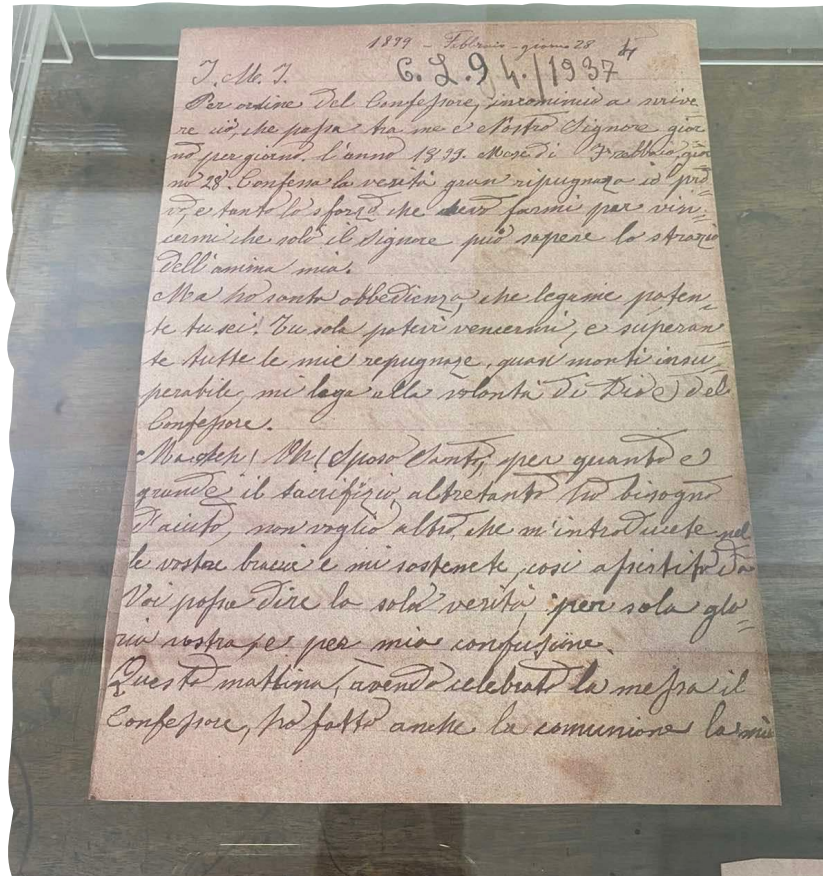 1899 - Febbraio - giorno 28
J. M. J. C. L. 9 4. / 1937
Per ordine del Confessore, incomincio a scrive
re ciò, che passa tra me e Nostro Signore gior
no per giorno. l'anno 1899. Mese di Frebbaio, gior
no 28. Confessa la verità gran ripugnaza io pro-
vo, e tanto lo sforzo che devo farmi per vin-
cermi che solo il Signore può sapere lo strazio
dell'anima mia.
Ma ho santa obbedienza, che legame poten-
te tu sei! Tu sola potevi vencermi, e superan-
te tutte le mie repugnaze, quasi monti insu-
perabile, mi lega alla volontà di Dio e del
Confessore.
Ma deh! Oh! Sposo Santo, per quanto e
grande il sacrifizio, altretanto ho bisogno
d'aiuto, non voglio altro, che m'introducete nel
le vostre braccia e mi sostenete, così assistito da
Voi possa dire la sola verità, per sola glo-
ria vostra, e per mia confusione.
Questa mattina, avendo celebrato la messa il
Confessore, ho fatto anche la comunione la mia